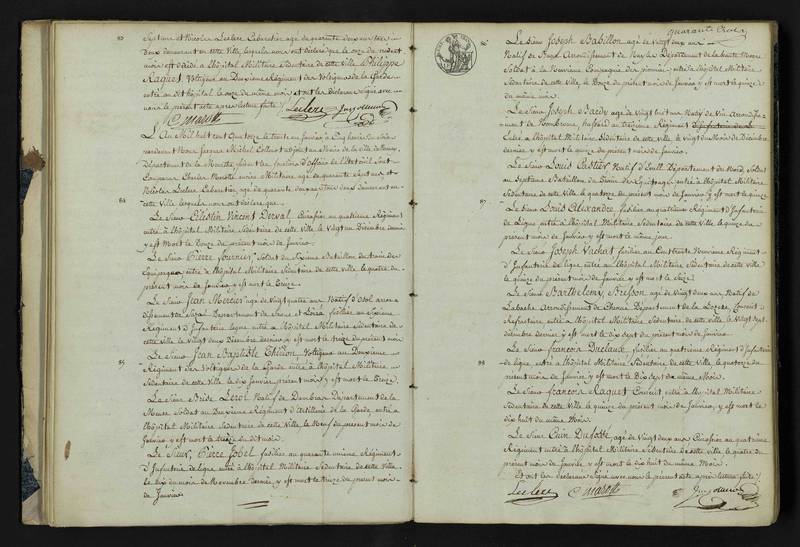 83
Septans et Nicolas Leclerc Laboratier agé de quarante deux ans tous
deux demeurant en cette Ville, lesquels nous ont déclaré que le onze de
moir est décédé à l'hôpital Militaire Sédentaire de cette Ville le Philippe
Raquet Voltigeur au Deuxième Régiment des Voltigeurs de la Garde
entré au dit hôpital le onze de même moir et ont les Déclarans Signé avec
nous le présent acte après lecture faite /.
C. marotte Leclerc
L'An Mil huit cent Quatorze le trente un janvier à Cinq heures du soir
pardevant Nous Jacques Michel Collart adjoint au Maire de la Ville de
Département de la Moselle, faisant les fonctions d'Officier de l'État civil Sont
Comparus Charles Marotte ancien Militaire agé de quarante Sept ans, et
Nicolas Leclerc Laboratier agé de quarante deux ans tous deux demeurant en
cette Ville lesquels nous ont déclaré que
84
Le Sieur Célestin Vincent Derval, Cuirassier au quatrième Régiment
entré à l'hôpital Militaire Sédentaire de cette Ville le Vingt un Décembre dernier
y est Mort le Douze du présent mois de Janvier.
Le Sieur Pierre fournier Soldat du Sixième Bataillon du train des
Equipages entré à l'hôpital Militaire Sédentaire de cette Ville le quatre du
présent mois de Janvier y est mort le Treize.
Le Sieur Jean Mercier agé de vingt quatre ans Natif
Département de Saone et Loire fusilier au Sixième
Régiment d'Infanterie legere entré à l'hôpital Militaire Sédentaire de
cette Ville le vingt deux Décembre dernier y est mort le treize du présent mois
85
Le Sieur Jean Baptiste Thirion Voltigeur au Deuxième
Régiment des Voltigeurs de la Garde entré à l'hôpital Militaire
Sédentaire de cette Ville le dix janvier présent mois y est mort le Treize.
Le Sieur Natif de Département de la
Meuse Soldat au Deuxième Régiment d'Artillerie de la Garde, entré à
l'hôpital Militaire Sédentaire de cette Ville, le Neuf du présent mois de
Janvier y est mort le treize du dit mois.
Le Sieur, Pierre Jobel fusilier au quarante unième Régiment
d'Infanterie de ligne entré à l'hôpital Militaire Sédentaire de cette Ville
le dix du mois de Novembre Dernier, y est mort le Treize du présent mois
de Janvier
quarante Trois
86
Le Sieur Joseph Babillon agé de Vingt deux ans
Natif de Arrondissement de Département de la haute Marne
Soldat à la Neuvième Compagnie des pionniers entré à l'hôpital Militaire
Sédentaire de cette Ville, le Douze du présent mois de Janvier y est mort le quinze
du même mois.
Le Sieur Joseph Bardy agé de Vingt huit ans Natif de
hussard au Treizième Régiment
Entré à l'hôpital Militaire Sédentaire de cette Ville, le Vingt du Mois de Décembre
dernier y est mort le quinze du présent mois de janvier.
Le Sieur Louis Castiau Natif Département du Nord, Soldat
au Septième Bataillon du Train des Equipages entré à l'hôpital Militaire
Sédentaire de cette Ville le quatorze du présent mois de Janvier y est mort le quinze
87
Le Sieur Louis Alexandre, fusilier au quatrième Régiment d'Infanterie
de Ligne entré à l'hôpital Militaire Sédentaire de cette Ville le quinze du
présent mois de Janvier y est mort le même jour.
Le Sieur Joseph Vachat fusilier au Cent trente Neuvième Régiment
d'Infanterie de ligne entré à l'hôpital Militaire Sédentaire de cette Ville
le quinze du présent mois de Janvier y est mort le Seize
Le Sieur Barthelemy Brisson agé de vingt deux ans Natif de
Arrondissement de Département de la Lozere, Conscrit
Réfractaire entré à l'hôpital Militaire Sédentaire de cette Ville, le Vingt Sept
décembre dernier y est mort le dix Sept du présent mois de Janvier.
88
Le Sieur françois Duclaux fusilier au quatrième Régiment d'Infanterie
de ligne, entré à l'hôpital Militaire Sédentaire de cette Ville, le quatorze du
présent mois de Janvier y est mort le Dix Sept du même Mois.
Le Sieur françois Raquet Conscrit entré à l'hôpital Militaire
Sédentaire de cette Ville le quinze du présent mois de Janvier, y est mort le
dix huit du même Mois.
Le Sieur agé de Vingt deux ans Cuirassier au quatrième
Régiment entré à l'hôpital Militaire Sédentaire de cette Ville le quatorze du
présent mois de Janvier, y est mort le dix huit du même Mois.
Et ont les déclarans Signé avec nous le présent acte après lecture faite /.
Leclerc C. marotte